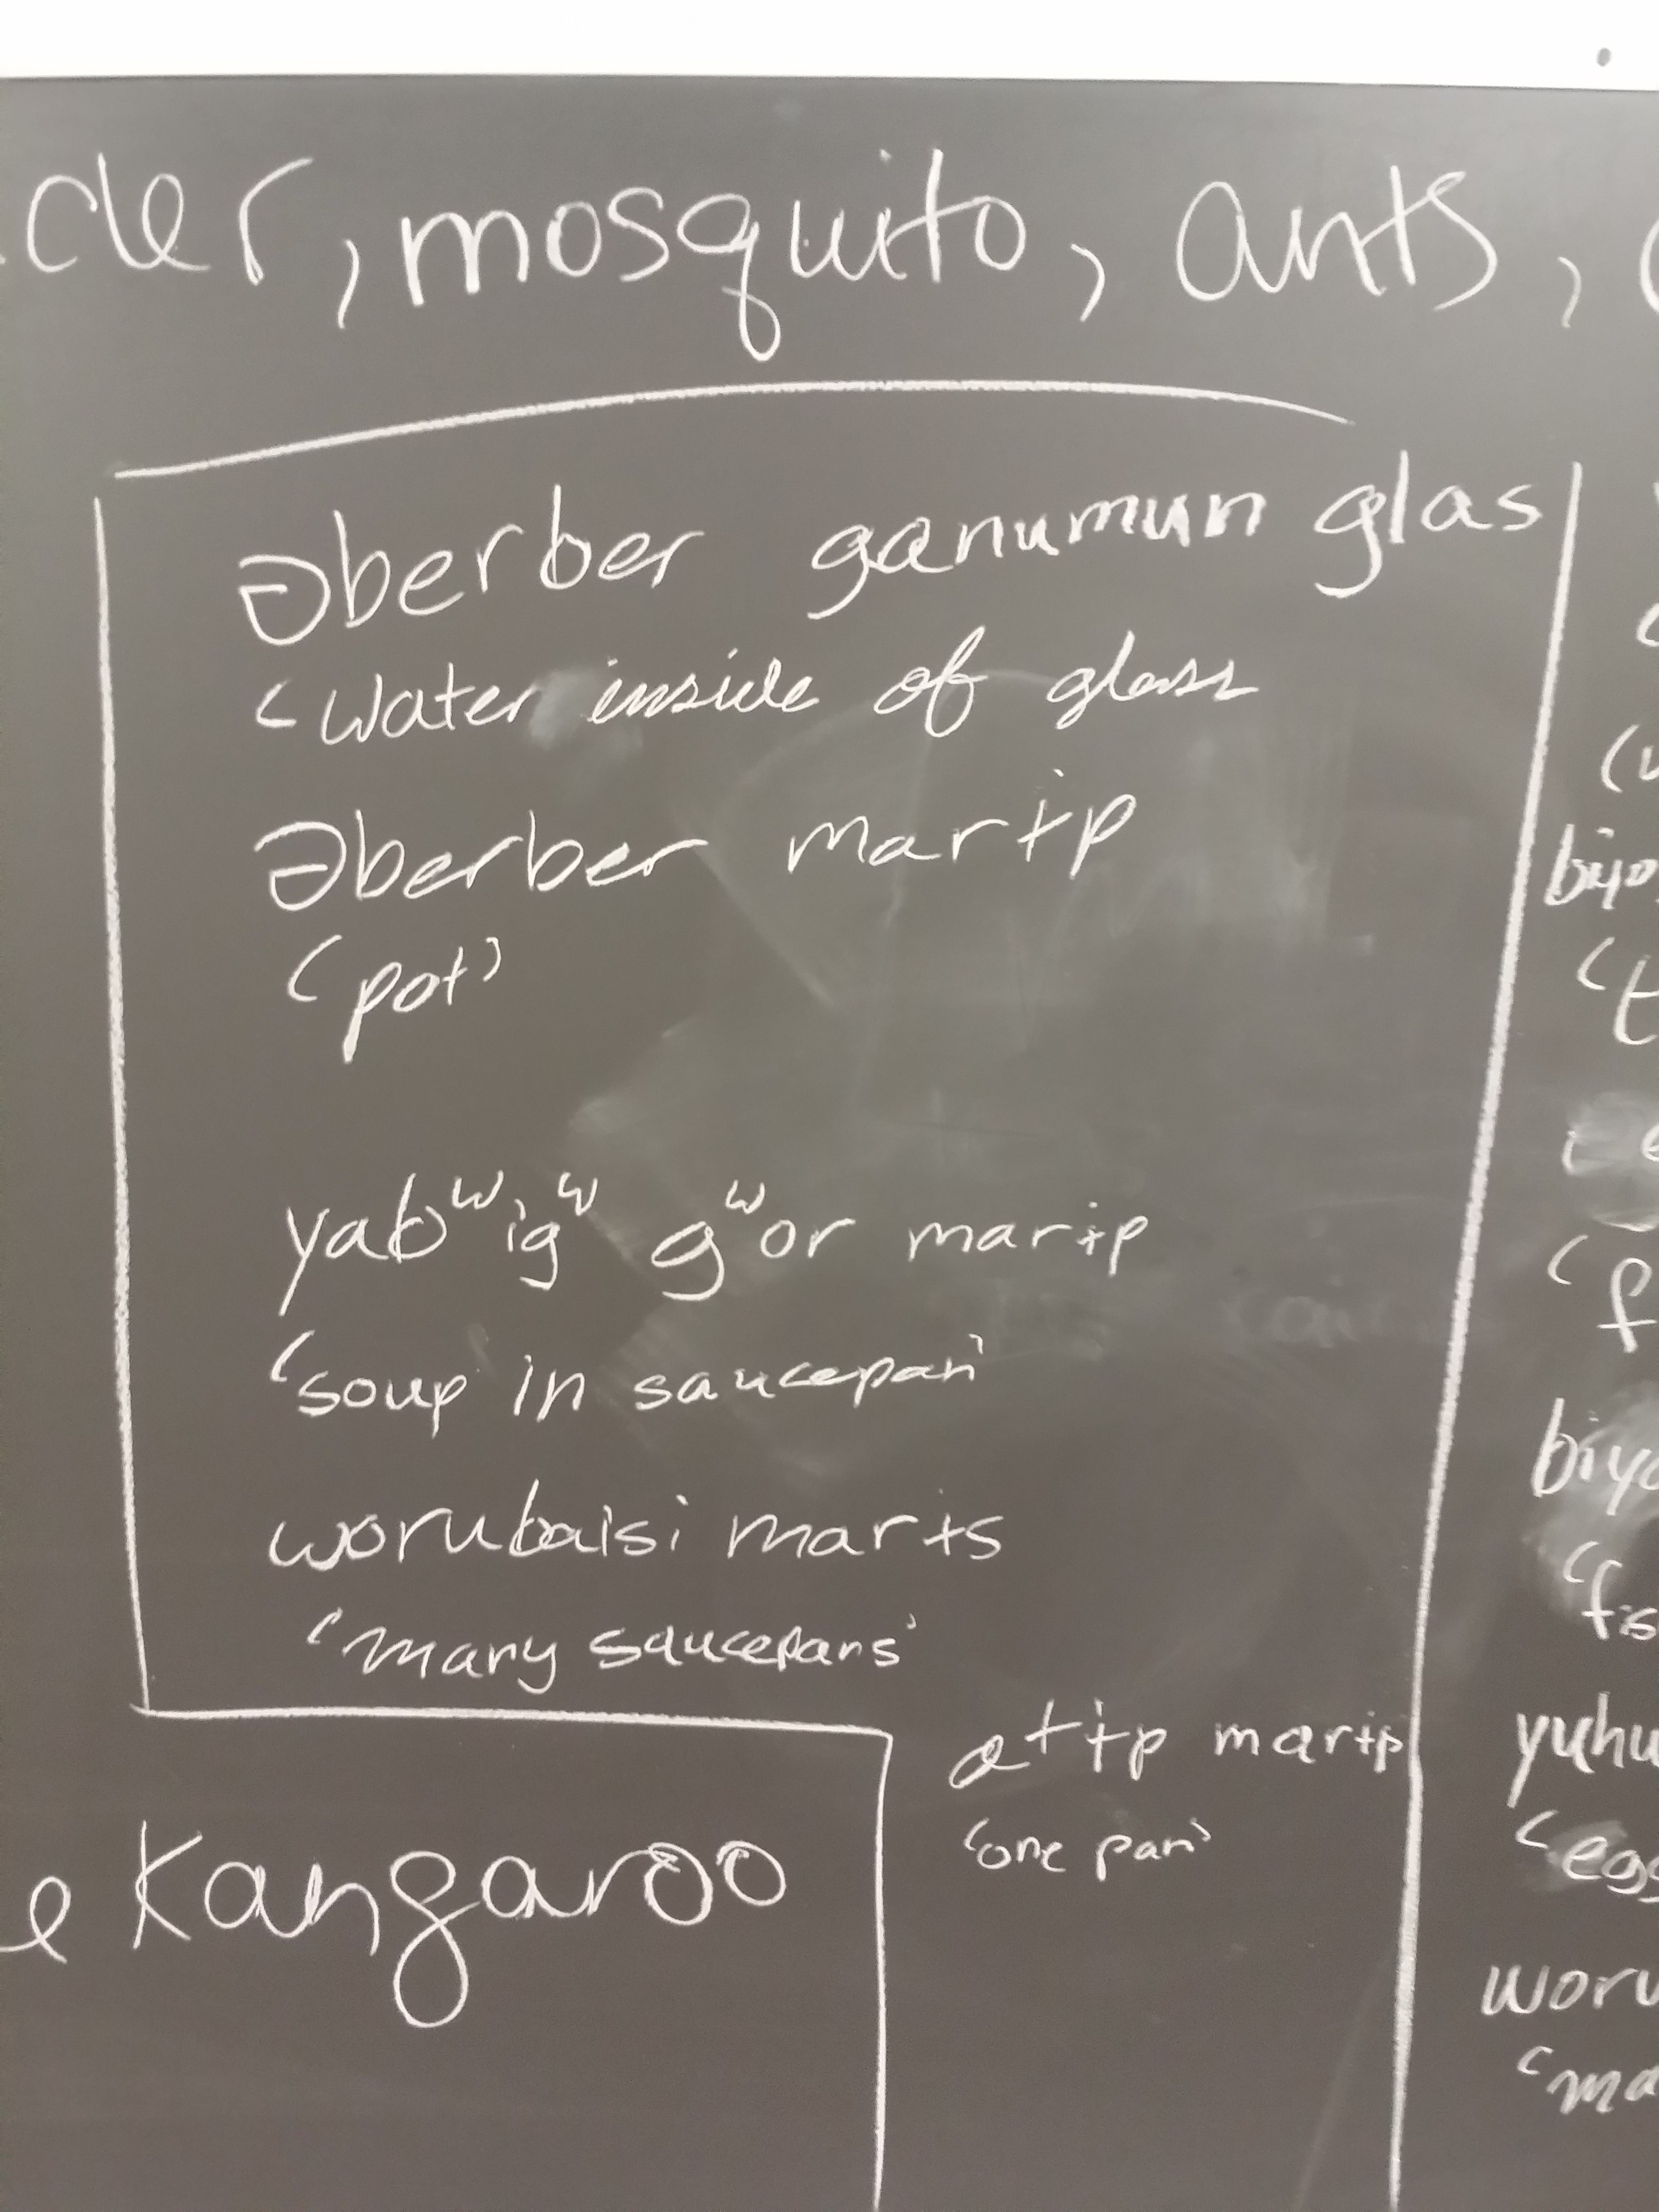 cler, mosquito, ants,
əberber ganumun glas
‘water inside of glass
əberber marɨp
‘pot’
yabʷigʷ gʷor marɨp
‘soup in saucepan’
worubaisi marɨs
‘many saucepans’
atɨp marɨp
‘one pan’
e Kangaroo
biyo
biyo
‘fis
yuhu
‘egg
woru
‘ma